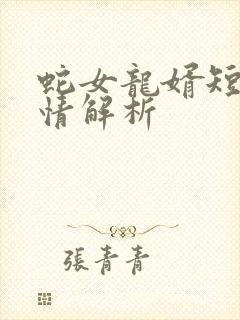 蛇女龍婿短
情解析
張青青